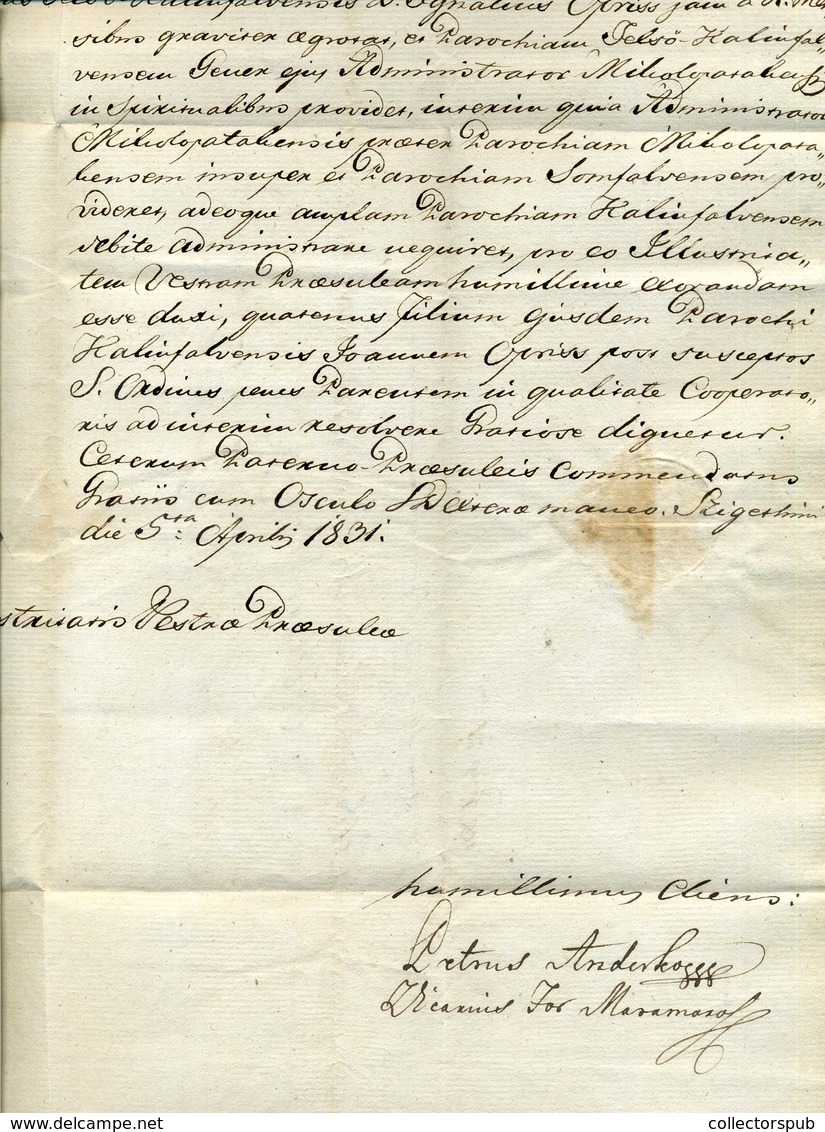 Ignatius Opriss jam a
sibus graviter ægrotat, et Parochiam Felsö-Kalinfal„
vensem Gener ejus Administrator Mikolapatakensis
in Spiritualibus providet, interim quia Administrator
Mikolapatakensis præter Parochiam Mikolapata„
kensem insuper et Parochiam Somfalvensem pro„
videret, adeoque amplam Parochiam Kalinfalvensem
debite administrare nequiret, pro eo Illustrita„
tem Vestram Præsuleam humillime exorandam
esse duxi, quatenus filium ejusdem Parochi
Kalinfalvensis Joannem Opriss post susceptos
S. Ordines penes Parentem in qualitate Cooperato„
ris ad interim resolvere Gratiose dignetur.
Ceterum Paterno-Præsuleis commendatus
Gratiis cum Osculo Dexteræ maneo. Szigethini
die 5ta Aprilis 1831.
stritatis Vestræ Præsuleæ
humillimus Cliens:
Petrus Anderko
Vicarius For Maramaros
www.delcampe.net
collectorspub